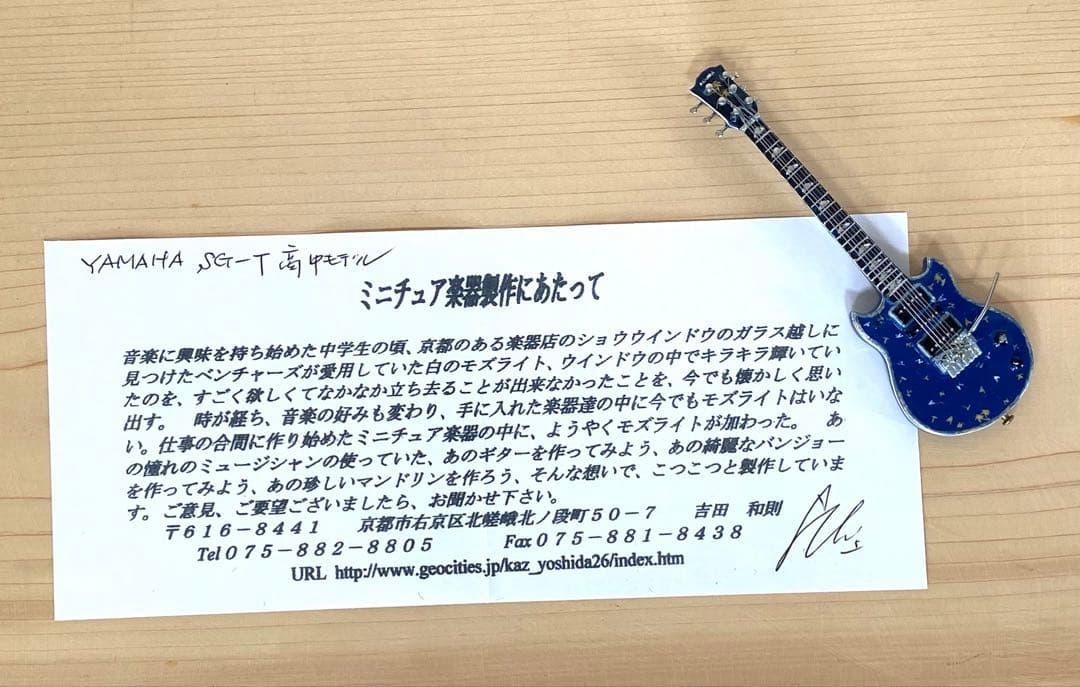 YAMAHA SG-T 高中モデル
ミニチュア楽器製作にあたって
音楽に興味を持ち始めた中学生の頃、京都のある楽器店のショウウインドウのガラス越しに
見つけたベンチャーズが愛用していた白のモズライト、ウインドウの中でキラキラ輝いてい
たのを、すごく欲しくてなかなか立ち去ることが出来なかったことを、今でも懐かしく思い
出す。 時が経ち、音楽の好みも変わり、手に入れた楽器達の中に今でもモズライトはいな
い。仕事の合間に作り始めたミニチュア楽器の中に、ようやくモズライトが加わった。 あ
の憧れのミュージシャンの使っていた、あのギターを作ってみよう、あの綺麗なバンジョー
を作ってみよう、あの珍しいマンドリンを作ろう、そんな想いで、こつこつと製作していま
す。ご意見、ご要望ございましたら、お聞かせ下さい。
〒616-8441 京都市右京区北嵯峨北ノ段町50-7 吉田 和則
Tel075-882-8805 Fax075-881-8438
URL http://www.geocities.jp/kaz_yoshida26/index.htm